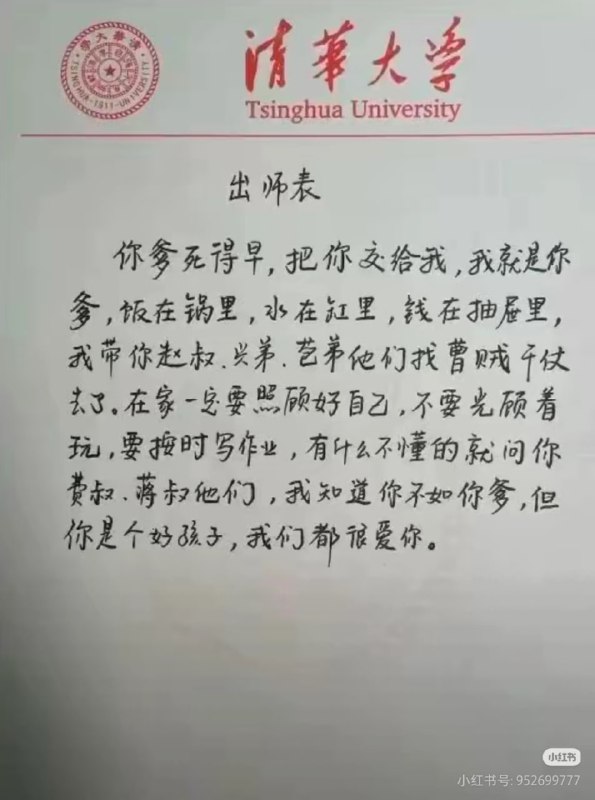 清華大学
Tsinghua University
TSINGHUA-1911-UNIVERSITY
出师表
你爹死得早，把你交给我，我就是你
爹，饭在锅里，水在缸里，钱在抽屉里，
我带你赵叔、兴弟、苞弟他们找曹贼干仗
去了。在家一定要照顾好自己，不要光顾着
玩，要按时写作业，有什么不懂的就问你
费叔、蒋叔他们，我知道你不如你爹，但
你是个好孩子，我们都很爱你。
小红书
小红书号: 952699777